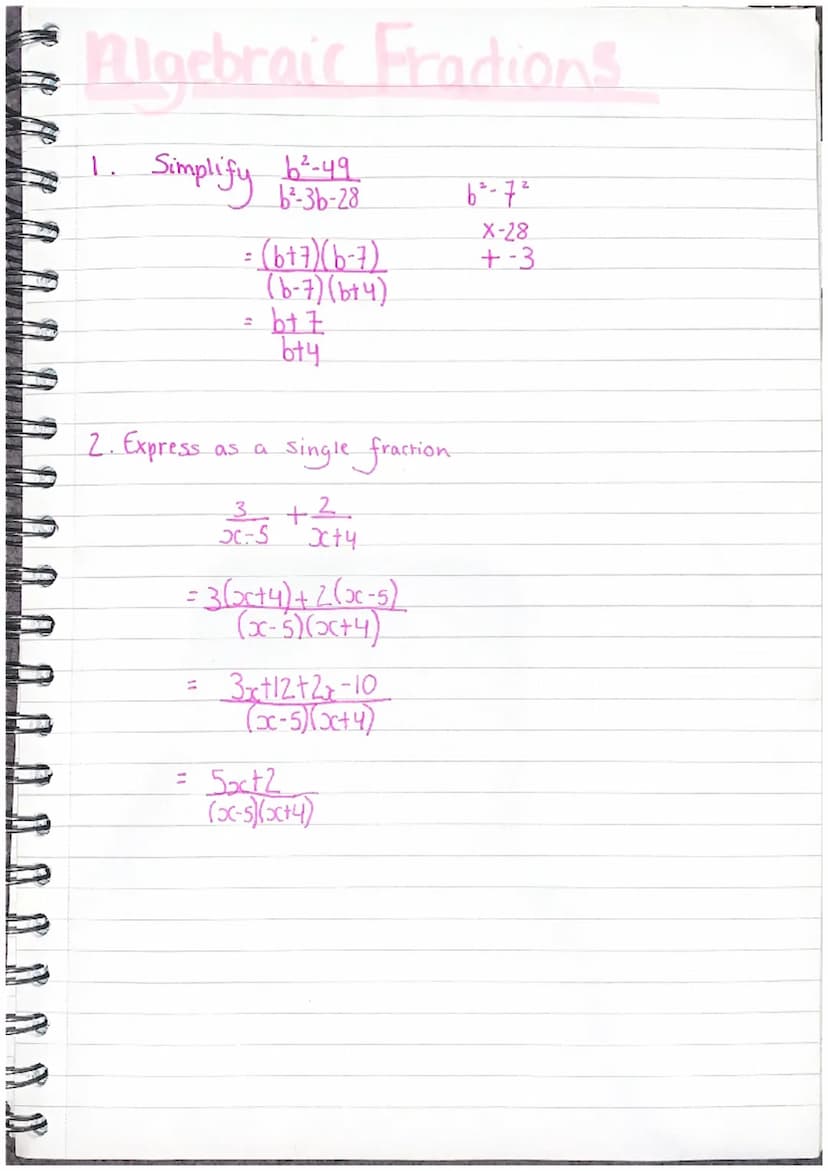 Algebraic Fractions
1. Simplify b²-49
b²-3b-28
b²-7²
x-28
+ -3
= (b+7)(b-7)
(b-7)(b+4)
= b+7
b+4
2. Express as a single fraction
3 + 2
x-5 x+4
= 3(x+4)+2(x-5)
(x-5)(x+4)
= 3x+12+2x-10
(x-5)(x+4)
= 5x+2
(x-5)(x+4)